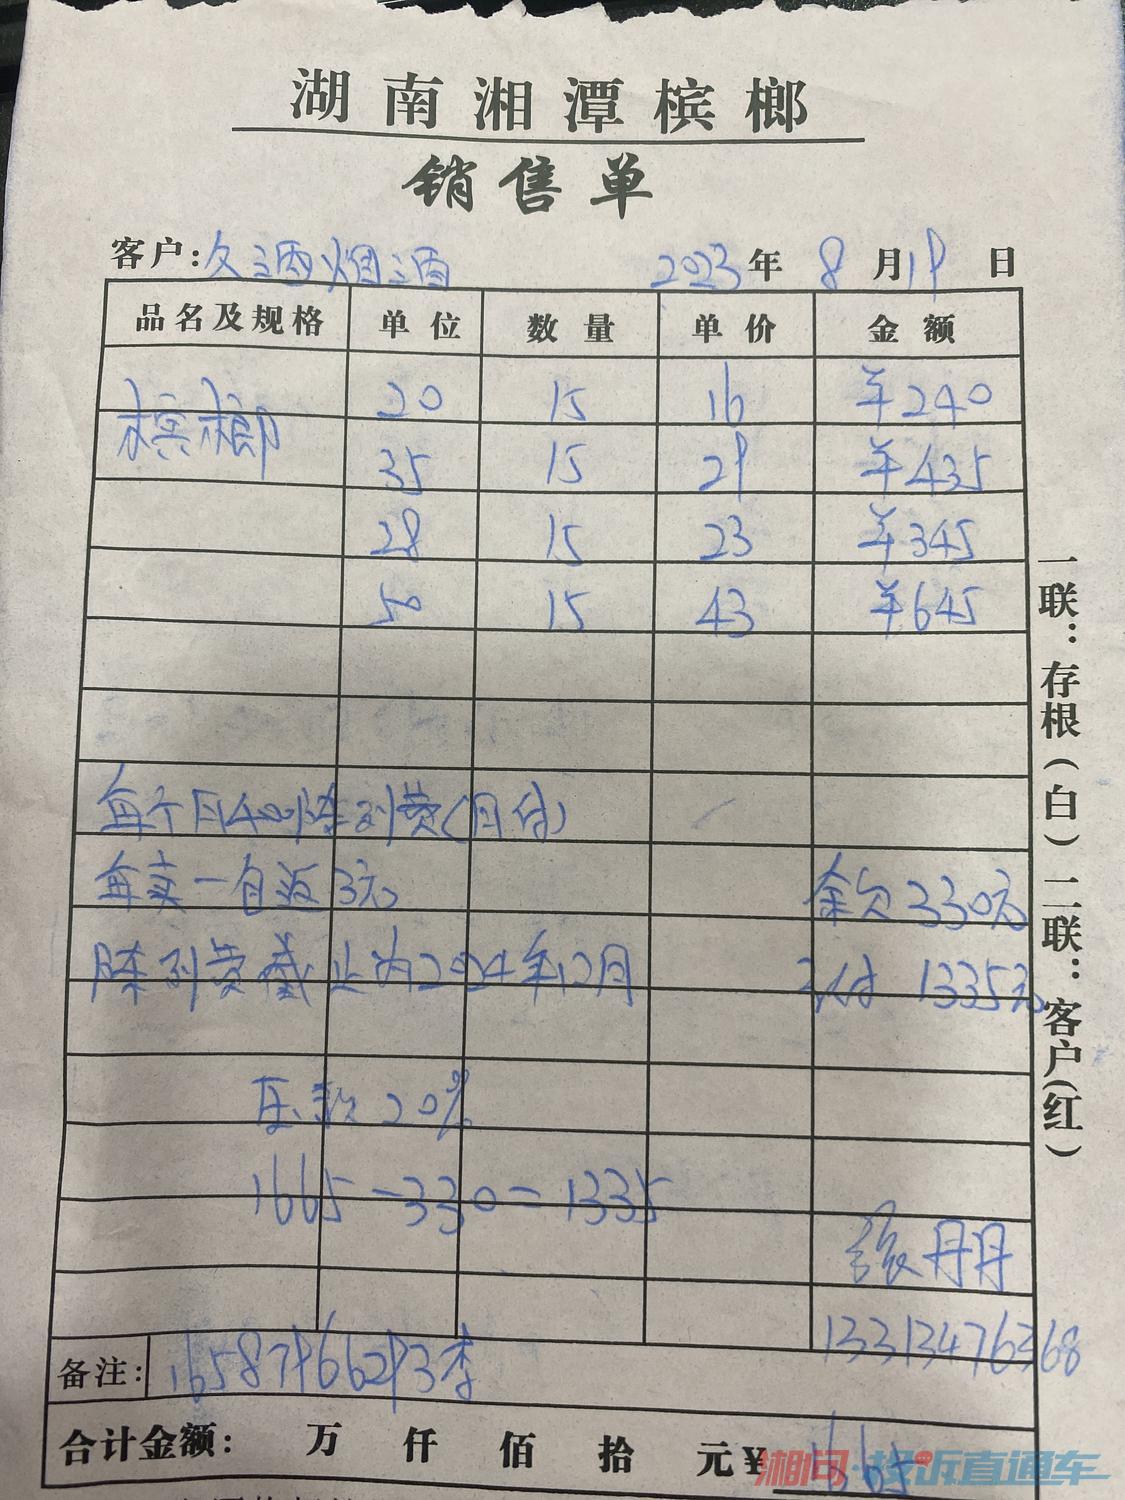 湖南湘潭槟榔
销售单
客户:久酒烟酒 2023年8月19日
品名及规格 单位 数量 单价 金额
槟榔 20 15 16 ¥240
35 15 29 ¥435
28 15 23 ¥345
50 15 43 ¥645
每个月400陈列费(月付)
每卖一包返3元 余欠330元
陈列费截止为2024年12月 付1335元
压款20%
1665-330=1335
张丹丹
13313476368
备注: 16587966293李
合计金额: 万 仟 佰 拾 元¥1665
一联:存根(白)二联:客户(红)
湘问·投诉直通车